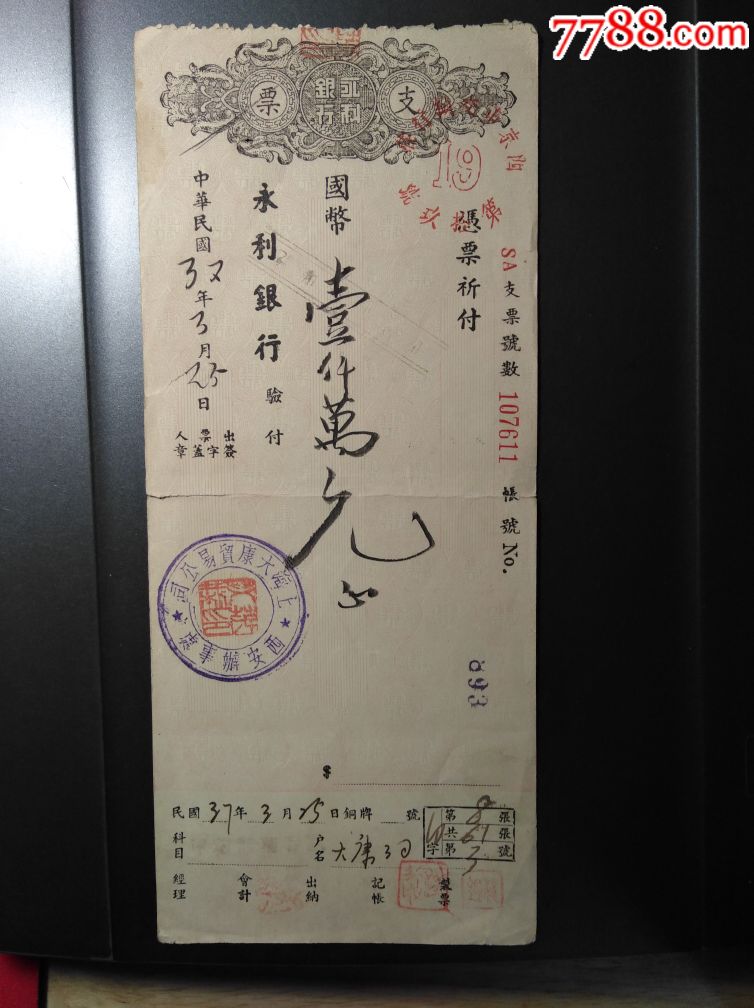 7788.com
支票
永利銀行
SA支票號數 107611 帳號 No.
憑票祈付
19
國幣壹仟萬元正
永利銀行 驗付
中華民國37年3月25日
出票人簽字蓋章
上海大康貿易公司
西安辦事處
893
$
民國37年3月25日銅牌 號
科目
戶名 大康公司
第 張
共 張
字第3號
經理 會計 出納 記帳 驗票